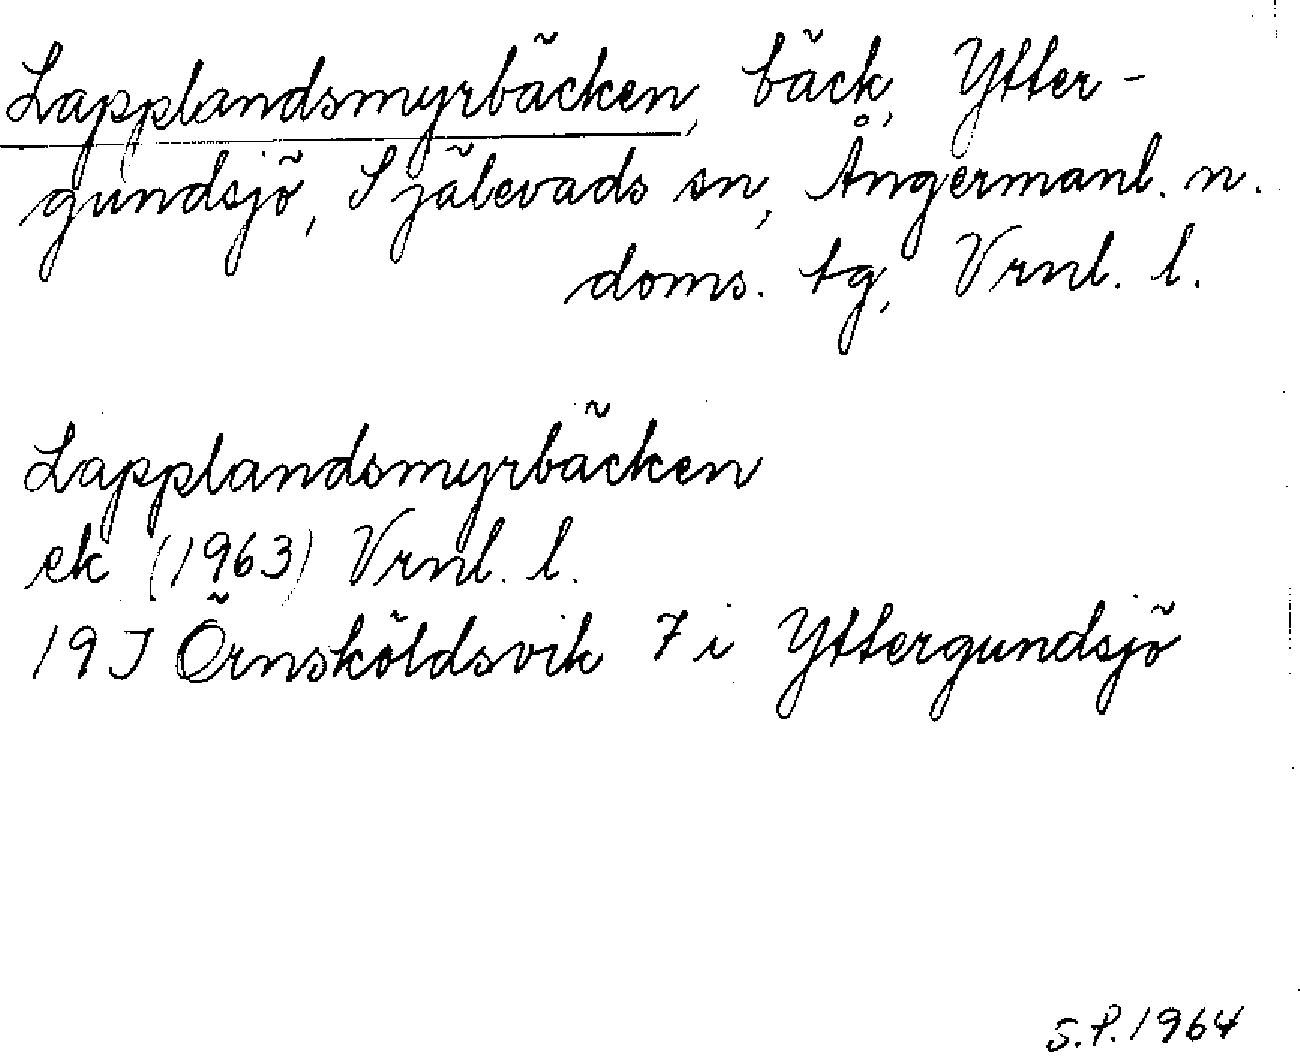 Lapplandsmyrbäcken, bäck, Ytter-
gundsjö, Själevads sn, Ångermanl. n.
doms. tg, Vrnl. l.
Lapplandsmyrbäcken
ek (1963) Vrnl. l.
19J Örnsköldsvik 7 i Yttergundsjö
S.P. 1964